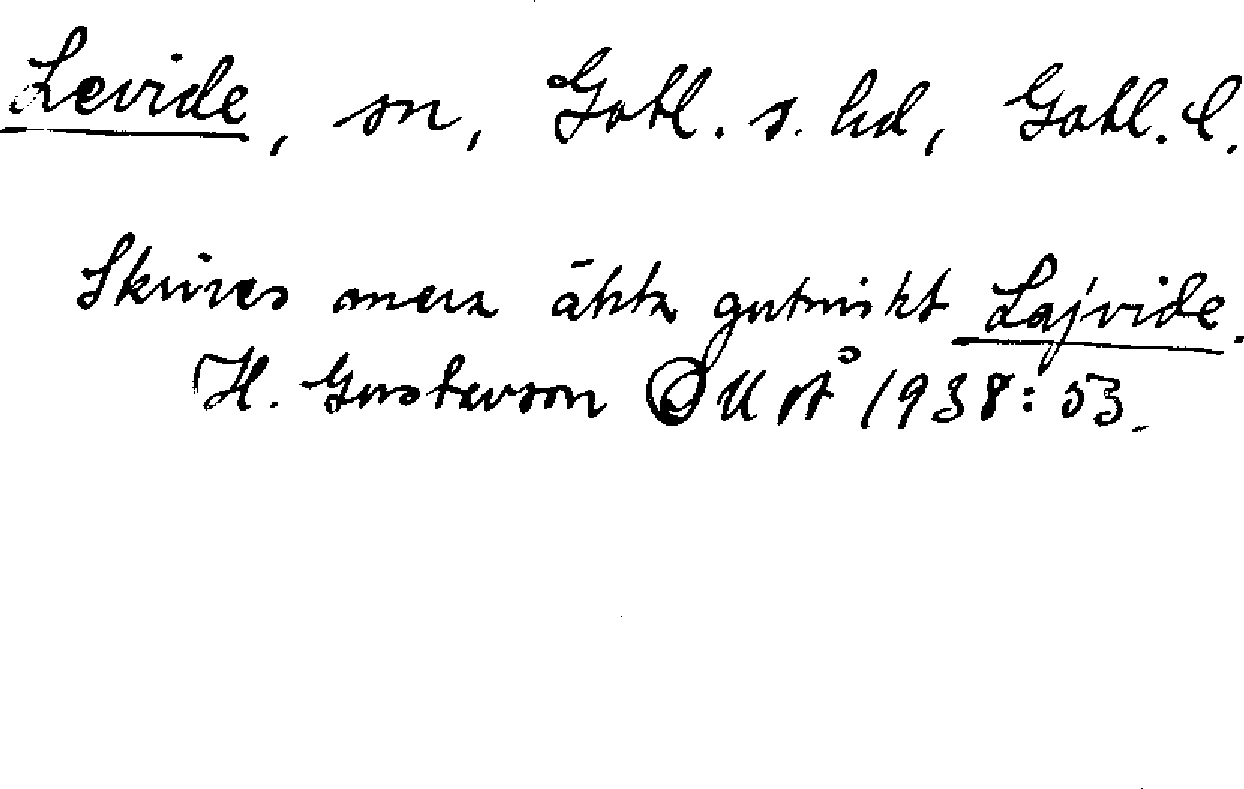 Levide, sn, Gotl. s. hd, Gotl. l.
Skrives mera äkta gutniskt Lajvide.
H. Gustavson OUÅ 1938:53.